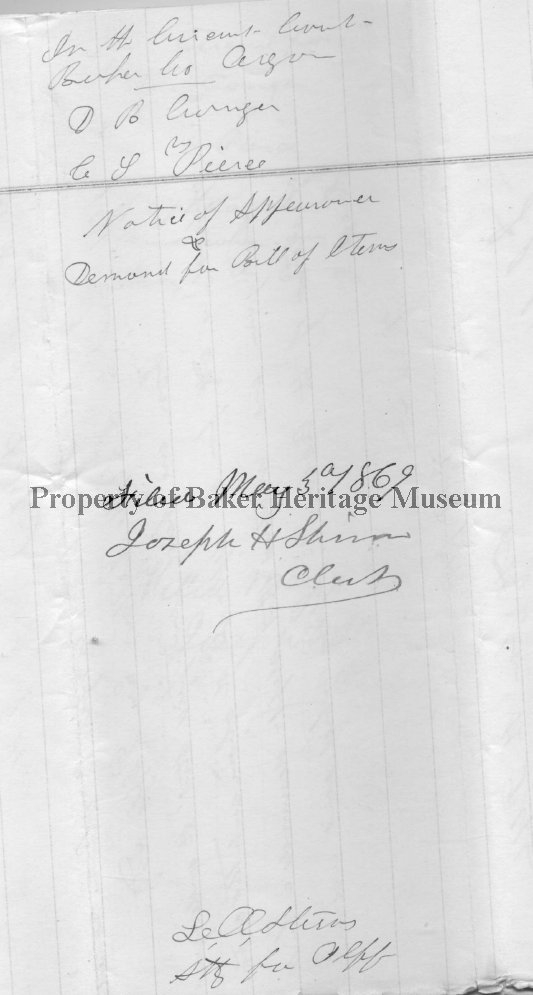 In th Circuit Court
Baker Co Oregon
D B
vs
C S Pierce
Notice of Appearance
&
Demand for Bill of Items
Filed May 3d 1869
Property of Baker Heritage Museum
Joseph H Shinn
Clerk
Atty for Plff